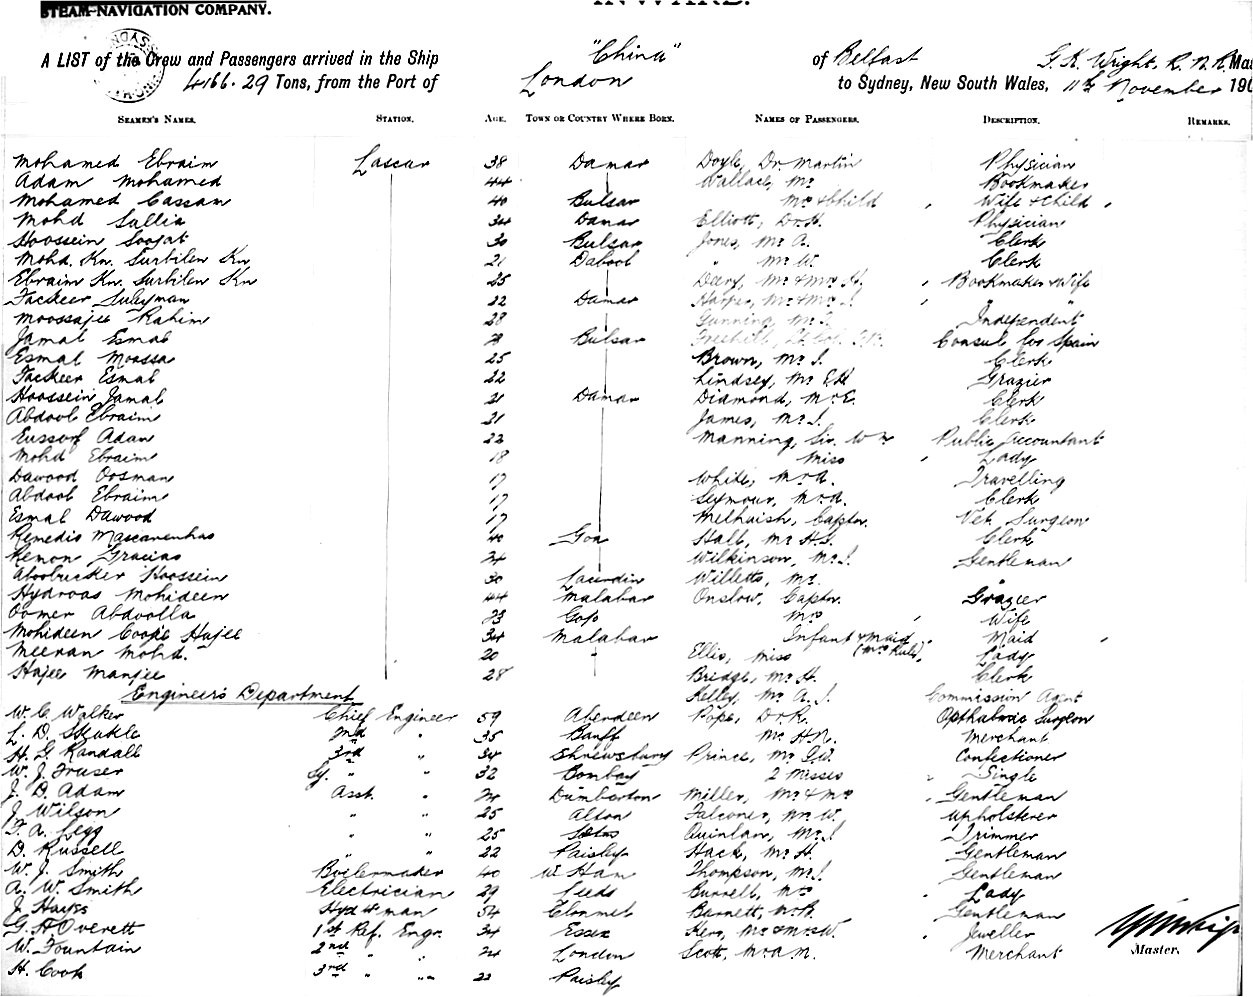 STEAM-NAVIGATION COMPANY.
INWARD.
A LIST of the Crew and Passengers arrived in the Ship "China" of Belfast G. K. Wright, R.N.R. Mas
4166.29 Tons, from the Port of London to Sydney, New South Wales, 11th November 190
SEAMEN'S NAMES. STATION. AGE. TOWN OR COUNTRY WHERE BORN. NAMES OF PASSENGERS. DESCRIPTION. REMARKS.
Mohamed Ebraim Lascar 38 Daman Doyle, Dr. Martin Physician
Adam Mohamed 44 Wallace, Mr Bookmaker
Mohamed Cassam 40 Bulsar Mrs & Child Wife & Child
Mohd Sallia 34 Daman Elliott, Dr. H. Physician
Hoossein 30 Bulsar Jones, Mr A. Clerk
Mohd. Kn. Surbilen Kn 21 Dabool " Mr W. Clerk
Ebraim Kn. Surbilen Kn 25 Mr & Mrs Bookmaker & Wife
Fackeer Suleyman 22 Daman Harper, Mr & Mrs " "
Moossajee Rahim 28 Gunning, Mr Independent
Jamal Esmal Bulsar Consul for Spain
Esmal Moossa 25 Brown, Mr J. Clerk
Fackeer Esmal 22 Lindsey, Mr E.H Grazier
Hoossein Jamal 21 Daman Diamond, Mr E. Clerk
Abdool Ebraim 21 James, Mr J. Clerk
Eussoof Adam 22 Manning, Sir Wm Public Accountant
Mohd Ebraim 18 Miss Lady
Dawood Oosman 17 White, Mr A. Travelling
Abdool Ebraim 17 Seymour, Mr A. Clerk
Esmal Dawood 17 Melhuish, Captn. Vet. Surgeon
Remedis Mascarenhas 40 Goa Hall, Mr H.S. Clerk
Remon Gracias 24 Wilkinson, Mr J. Gentleman
Aboobucker Hoossein 30 Willetts, Mr. "
Hydroos Mohideen 44 Malabar Onslow, Captn. Grazier
Oomer Abdoolla 23 Gogo Mrs Wife
Mohideen Hajee 34 Malabar Infant & Maid Maid
Meeran Mohd. 20 " Ellis, Miss Lady
Hajee Manjee 28 Bridge, Mr H. Clerk
Engineer's Department Kelly, Mr A. J. Commission Agent
W. C. Walker Chief Engineer 59 Aberdeen Pope, Dr R. Opthalmic Surgeon
L. D. 2nd " 35 Banff Mr H.N. Merchant
H. G Randall 3rd " 34 Shrewsbury Prince, Mr G.W. Confectioner
W. J. Fraser " " 32 Bombay 2 Misses Single
J. D. Adam Asst. " 24 Dumbarton Miller, Mr & Mrs Gentleman
J Wilson " " 25 Alton Falconer, Mr W. Upholsterer
F. A. Legg " " 25 Quinlan, Mr J Trimmer
D. Russell " " 22 Paisley Hack, Mr H. Gentleman
W. J. Smith Boilermaker 40 W. Ham Thompson, Mr J. Gentleman
A. W. Smith Electrician 29 Leeds Burrell, Mrs Lady
J Hayes 54 Clonmel Barnett, Mr B. Gentleman
G. H Overett 1st Ref. Engr. 34 Essex Kerr, Mr & Mrs W. Jeweller
W. Fountain 2nd " " 24 London Scott, Mr A. M. Merchant
Master.
H. Cook 3rd " " 22 Paisley